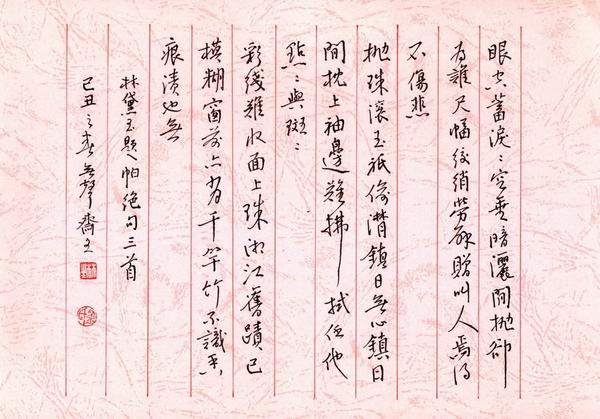 眼空蓄淚〻空垂暗灑閒拋卻
為誰尺幅絞綃勞解贈叫人焉得
不傷悲
拋珠滾玉祇偷潸鎮日無心鎮日
間枕上袖邊難拂拭任他
點〻與斑〻
彩綫難收面上珠湘江舊蹟已
模糊窗前亦有千竿竹不識香
痕漬也無
林黛玉題帕絕句三首
己丑之春無聲齋主